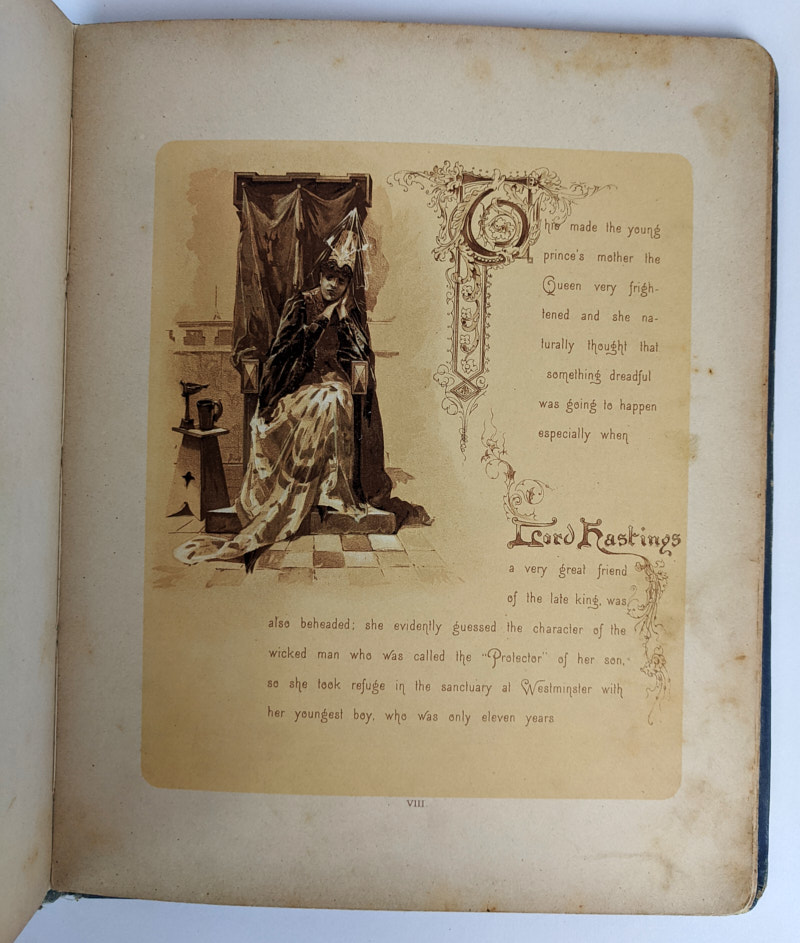 This made the young
prince's mother the
Queen very frigh-
tened and she na-
turally thought that
something dreadful
was going to happen
especially when
Lord Hastings
a very great friend
of the late king, was
also beheaded; she evidently guessed the character of the
wicked man who was called the "Protector" of her son,
so she took refuge in the sanctuary at Westminster with
her youngest boy, who was only eleven years
VIII